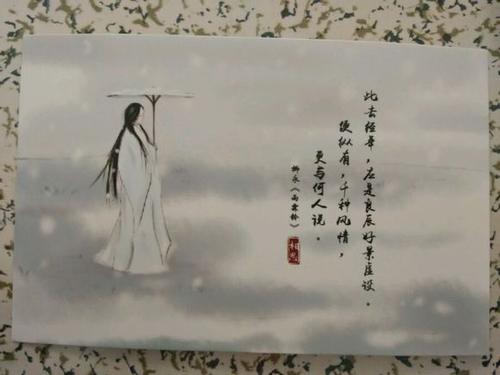 此去经年，应是良辰好景虚设。
便纵有，千种风情，
更与何人说。
柳永《雨霖铃》
相思